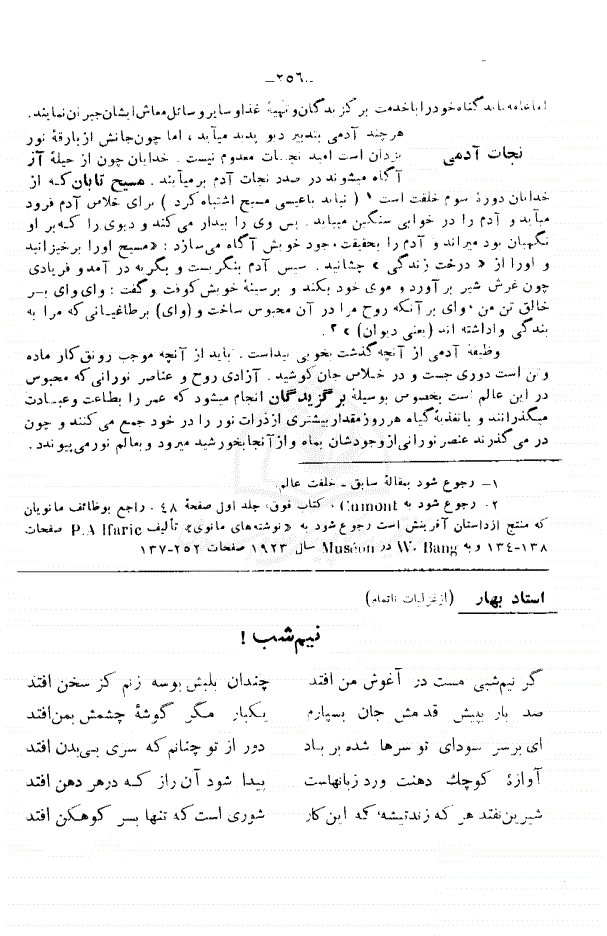 –۲۵۶–
اما عامه باید گناه خود را با خدمت برگزیدگان و تهیهٔ غذا و سایر وسائل معاش ایشان جبران نمایند.
نجات آدمی
هرچند آدمی بتدبیر دیو پدید میآید، اما چون جانش از بارقهٔ نور
یزدان است امید نجات معدوم نیست. خدایان چون از حیلهٔ آز
آگاه میشوند در صدد نجات آدم برمیآیند. مسیح تابان که از
خدایان دورهٔ سوم خلقت است ۱ (نباید باعیسی مسیح اشتباه کرد) برای خلاص آدم فرود
میآید و آدم را در خوابی سنگین مییابد. پس وی را بیدار می کند و دیوی را که بر او
نگهبان بود میراند و آدم را بحقیقت وجود خویش آگاه می سازد: «مسیح اورا برخیزانید
و اورا از «درخت زندگی» چشانید. سپس آدم بنگریست و بگریه در آمد و فریادی
چون غرش شیر بر آورد و موی خود بکند و بر سینهٔ خویش کوفت و گفت: وای وای بر
خالق تن من، وای بر آنکه روح مرا در آن محبوس ساخت و (وای) بر طاغیانی که مرا به
بندگی واداشته اند (یعنی دیوان)» ۲.
وظیفهٔ آدمی از آنچه گذشت بخوبی پیداست. باید از آنچه موجب رونق کار ماده
و تن است دوری جست و در خلاص جان کوشید. آزادی روح و عناصر نورانی که محبوس
در این عالم است بخصوص بوسیلهٔ برگزیدگان انجام میشود که عمر را بطاعت و عبادت
میگذرانند و با تغذیهٔ گیاه هر روز مقدار بیشتری از ذرات نور را در خود جمع می کنند و چون
در می گذرند عنصر نورانی از وجودشان بماه و از آنجا بخورشید میرود و بعالم نور می پیوندد.
۱– رجوع شود بمقالهٔ سابق - خلقت عالم.
۲۰ رجوع شود به Cumont، کتاب فوق، جلد اول صفحهٔ ۴۸. راجع بوظائف مانویان
که منتج ازداستان آفرینش است رجوع شود به «نوشته‌های مانوی» تألیف P.Alfaric صفحات
۱۳۴-۱۳۸ و به W. Bang در Muséon سال ۱۹۲۳ صفحات ۲۵۲-۱۳۷
استاد بهار (از غزلیات ناتمام)
نیم‌شب!
گر نیم‌شبی مست در آغوش من افتد چندان بلبش بوسه زنم کز سخن افتد
صد بار بپیش قدمش جان بسپارم یکبار مگر گوشهٔ چشمش بمن افتد
ای برسر سودای تو سرها شده بر باد دور از تو چنانم که سری بی‌بدن افتد
آوازهٔ کوچک دهنت ورد زبانهاست پیدا شود آن راز که در هر دهن افتد
شیرین نفتد هر که زند تیشه، که این کار شوری است که تنها بسر کوهکن افتد